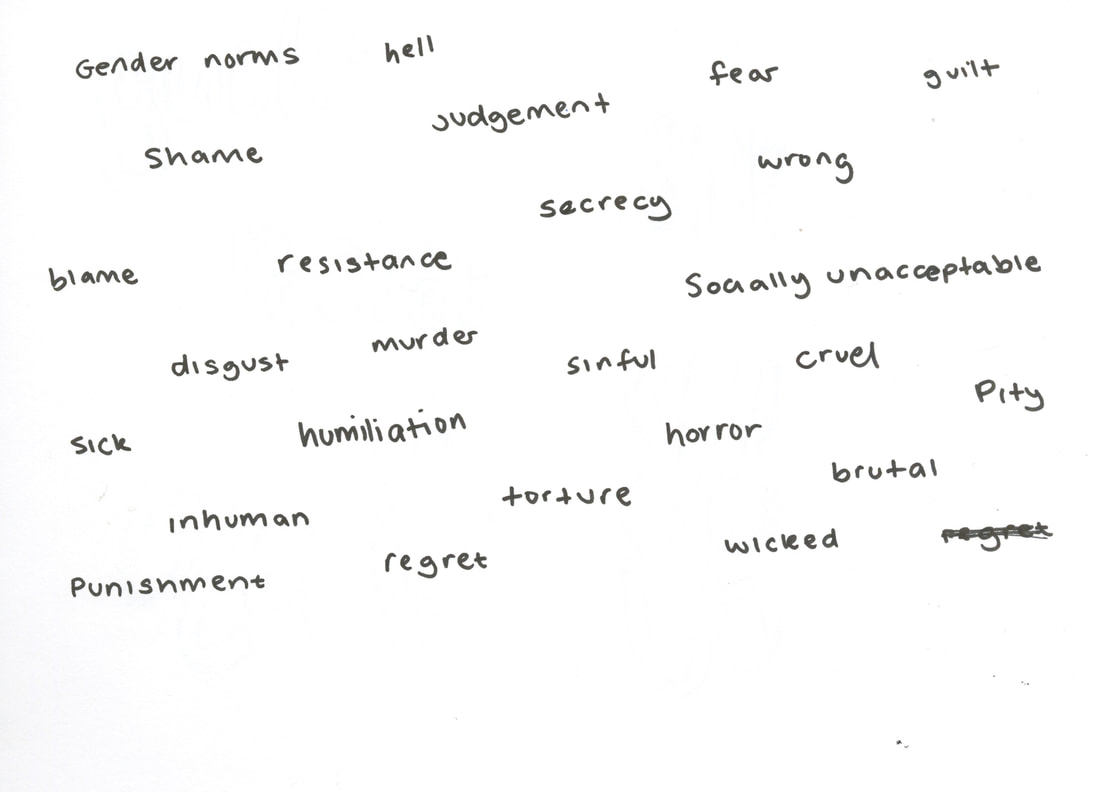 Gender norms
hell
fear
guilt
judgement
Shame
wrong
secrecy
blame
resistance
Socially unacceptable
disgust
murder
sinful
cruel
Pity
sick
humiliation
horror
brutal
inhuman
torture
wicked
regret
Punishment
regret